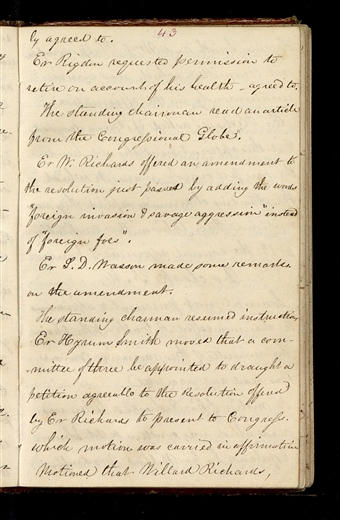 43
ly agreed to.
Er Rigdon requested permission to
retire on account of his health - agreed to.
The standing chairman read an article
from the Congressional Globe.
Er W. Richards offered an amendment to
the resolution just passed by adding the words
"foreign invasion & savage aggression" instead
of "foreign foes".
Er L. D. Wasson made some remarks
on the amendment.
The standing chairman resumed instruction
Er Hyrum Smith moved that a com-
mittee of three be appointed to draught a
petition agreeable to the Resolution offered
by Er Richards to present to Congress.
which motion was carried in affirmative
Motioned that Willard Richards,